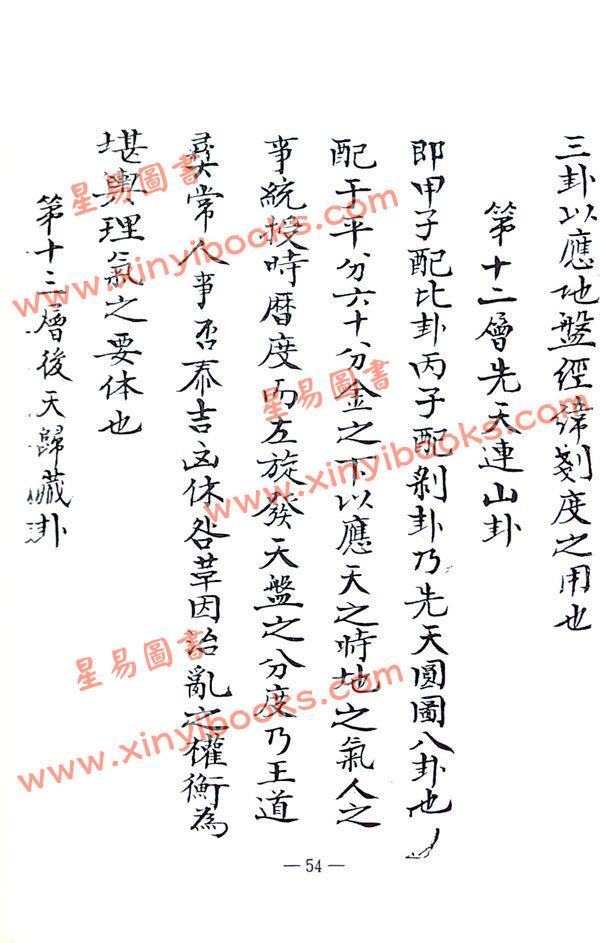 三卦以應地盤經緯刻度之用也
第十二層先天連山卦
即甲子配比卦丙子配剝卦乃先天圓圖八卦也
配于平分六十分金之下以應天之時地之氣人之
事統授時曆度而左旋發天盤之分度乃王道
彝常人事否泰吉凶休咎革因治亂之權衡為
堪輿理氣之要体也
第十三層後天歸藏卦
星易圖書
www.xinyibooks.com
星易圖書
www.xinyibooks.com
星易圖書
www.xinyibooks.com
星易圖書
www.xinyibooks.com
—54—